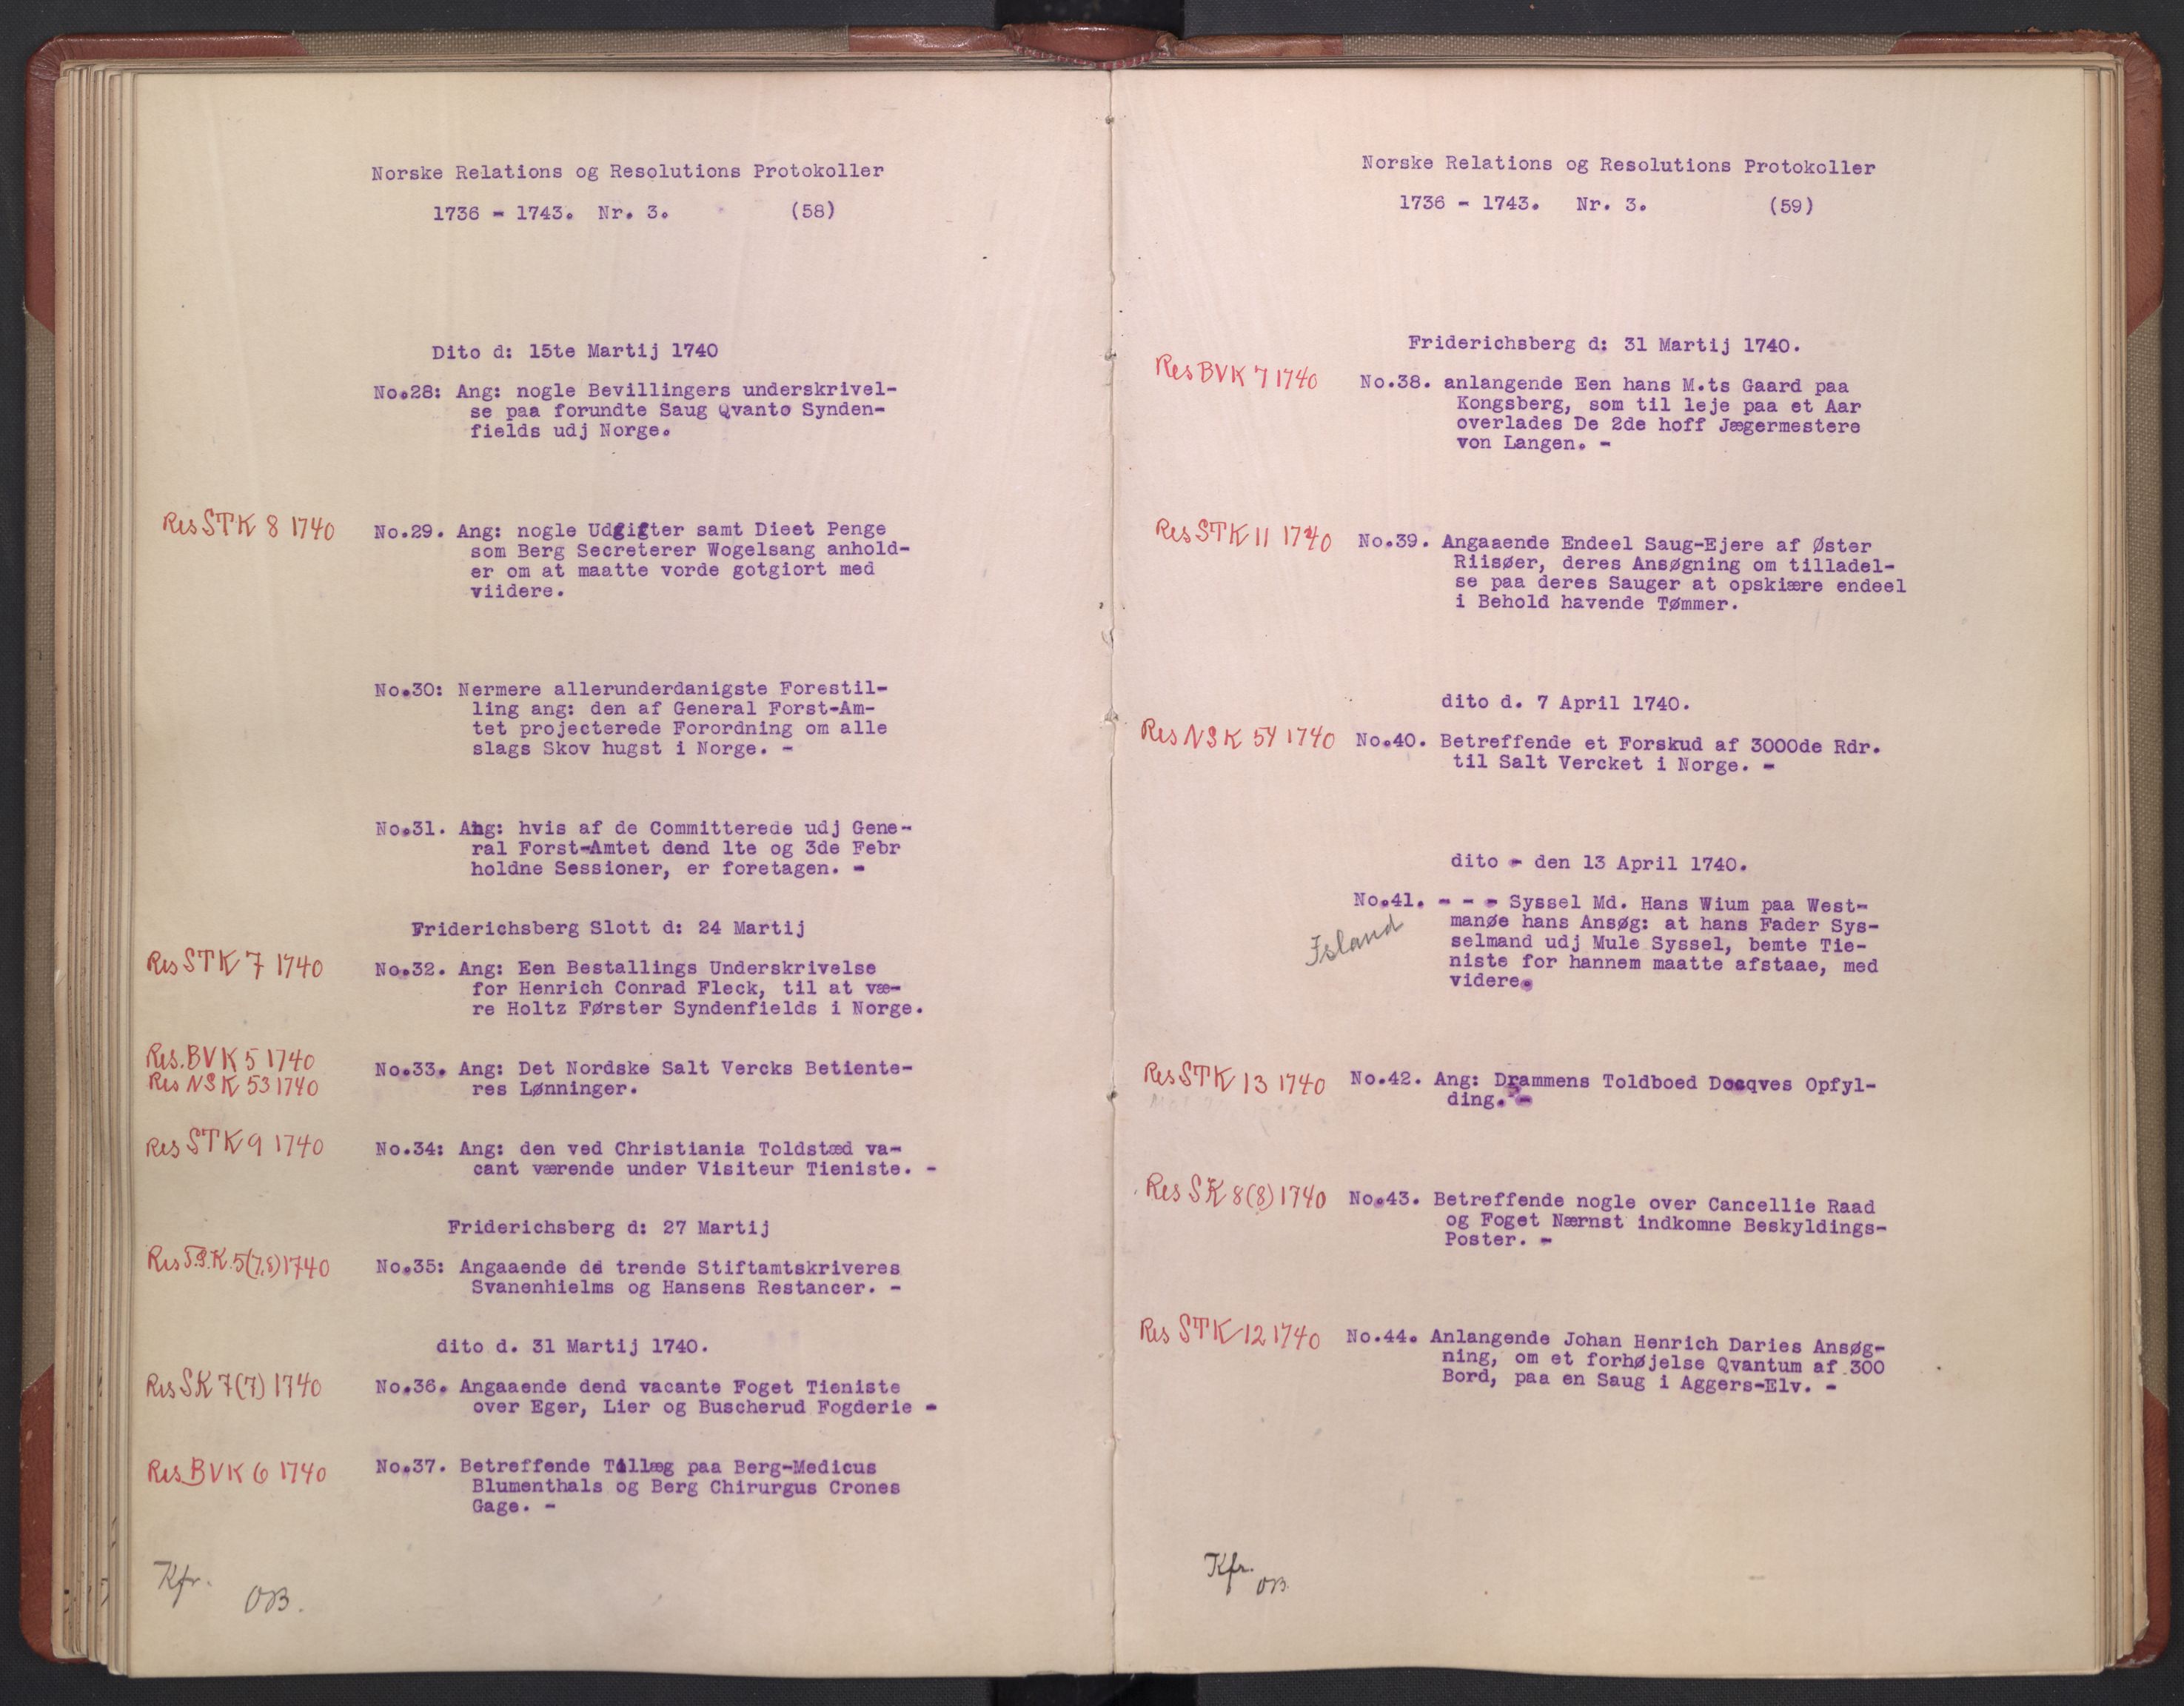 Norske Relations og Resolutions Protokoller
1736 - 1743. Nr. 3. (58)
Dito d: 15te Martij 1740
No.28: Ang: nogle Bevillingers underskrivel-
se paa forundte Saug Qvanto Synden-
fields udj Norge.
Res STK 8 1740 No.29. Ang: nogle Udgifter samt Dieet Penge
som Berg Secreterer Wogelsang anhold-
er om at maatte vorde gotgiort med
viidere.
No.30: Nermere allerunderdanigste Forestil-
ling ang: den af General Forst-Am-
tet projecterede Forordning om alle
slags Skov hugst i Norge. -
No.31. Ang: hvis af de Committerede udj Gene-
ral Forst-Amtet dend 1te og 3de Febr
holdne Sessioner, er foretagen. -
Friderichsberg Slott d: 24 Martij
Res STK 7 1740 No.32. Ang: Een Bestallings Underskrivelse
for Henrich Conrad Fleck, til at væ-
re Holtz Første​r Syndenfields i Norge.
Res. BVK 5 1740
Res NSK 53 1740 No.33. Ang: Det Nordske Salt Vercks Betiente-
res Lønninger.
Res STK 9 1740 No.34: Ang: den ved Christiania Toldstæd va-
cant værende under Visiteur Tieniste. -
Friderichsberg d: 27 Martij
Res T.S.K. 5(7,8) 1740 No.35: Angaaende de trende Stiftamtskriveres
Svanenhielms og Hansens Restancer. -
dito d. 31 Martij 1740.
Res SK 7(7) 1740 No.36. Angaaende dend vacante Foget Tieniste
over Eger, Lier og Buscherud Fogderie -
Res BVK 6 1740 No.37. Betreffende Tillæg paa Berg-Medicus
Blumenthals og Berg Chirurgus Crones
Gage. -
Kfr.
OB.
Norske Relations og Resolutions Protokoller
1736 - 1743. Nr. 3. (59)
Friderichsberg d: 31 Martij 1740.
Res BVK 7 1740 No.38. anlangende Een hans M.ts Gaard paa
Kongsberg, som til leje paa et Aar
overlades De 2de hoff Jægermestere
von Langen. -
Res STK 11 1740 No.39. Angaaende Endeel Saug-Ejere af Øster
Riisøer, deres Ansøgning om tilladel-
se paa deres Sauger at opskiære endeel
i Behold havende Tømmer.
dito d. 7 April 1740.
Res NSK 54 1740 No.40. Betreffende et Forskud af 3000de Rdr.
til Salt Vercket i Norge. -
dito - den 13 April 1740.
No.41. - - - Syssel Md. Hans Wium paa West-
manøe hans Ansøg: at hans Fader Sys-
Island selmand udj Mule Syssel, bemte Tie-
niste for hannem maatte afstaae, med
videre.
Res STK 13 1740 No.42. Ang: Drammens Toldboed Docqves Opfyl-
ding. -
Res SK 8(8) 1740 No.43. Betreffende nogle over Cancellie Raad
og Foget Nærnst indkomne Beskyldings-
Poster. -
Res STK 12 1740 No.44. Anlangende Johan Henrich Daries Ansøg-
ning, om et forhøjelse Qvantum af 300
Bord, paa en Saug i Aggers-Elv. -
Kfr.
OB.